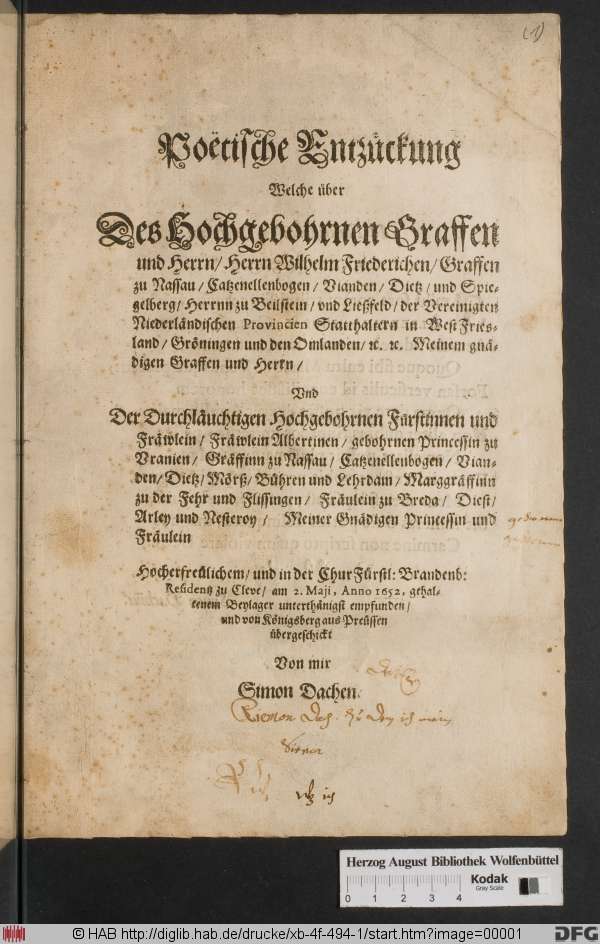 (1)
Poëtische Entzückung
Welche über
Des Hochgebohrnen Graffen
und Herrn/ Herrn Wilhelm Friederichen/ Graffen
zu Nassau/ Catzenellenbogen/ Vianden/ Dietz/ und Spie-
gelberg/ Herrnn zu Beilstein/ vnd Ließfeld/ der Vereinigten
Niederländischen Provincien Statthaltern in West Fries-
land/ Gröningen und den Omlanden/ ꝛc. ꝛc. Meinem gnä-
digen Graffen und Herrn/
Vnd
Der Durchläuchtigen Hochgebohrnen Fürstinnen und
Fräwlein/ Fräwlein Albertinen/ gebohrnen Princessin zu
Vranien/ Gräffinn zu Nassau/ Catzenellenbogen/ Vian-
den/ Dietz/ Mörß/ Bühren und Lehrdam/ Marggräffinn
zu der Fehr und Flissingen/ Fräulein zu Breda/ Diest/
Arley und Nesteroy/ Meiner Gnädigen Princessin und
Fräulein
Hocherfreülichem/ und in der ChurFürstl: Brandenb:
Residentz zu Cleve/ am 2. Maji, Anno 1652, gehal-
tenem Beylager unterthänigst empfunden/
und von Königsberg aus Preüssen
übergeschickt
Von mir
Simon Dachen.
ich
Herzog August Bibliothek Wolfenbüttel
0 1 2 3 4
Kodak
Gray Scale
© HAB http://diglib.hab.de/drucke/xb-4f-494-1/start.htm?image=00001
DFG